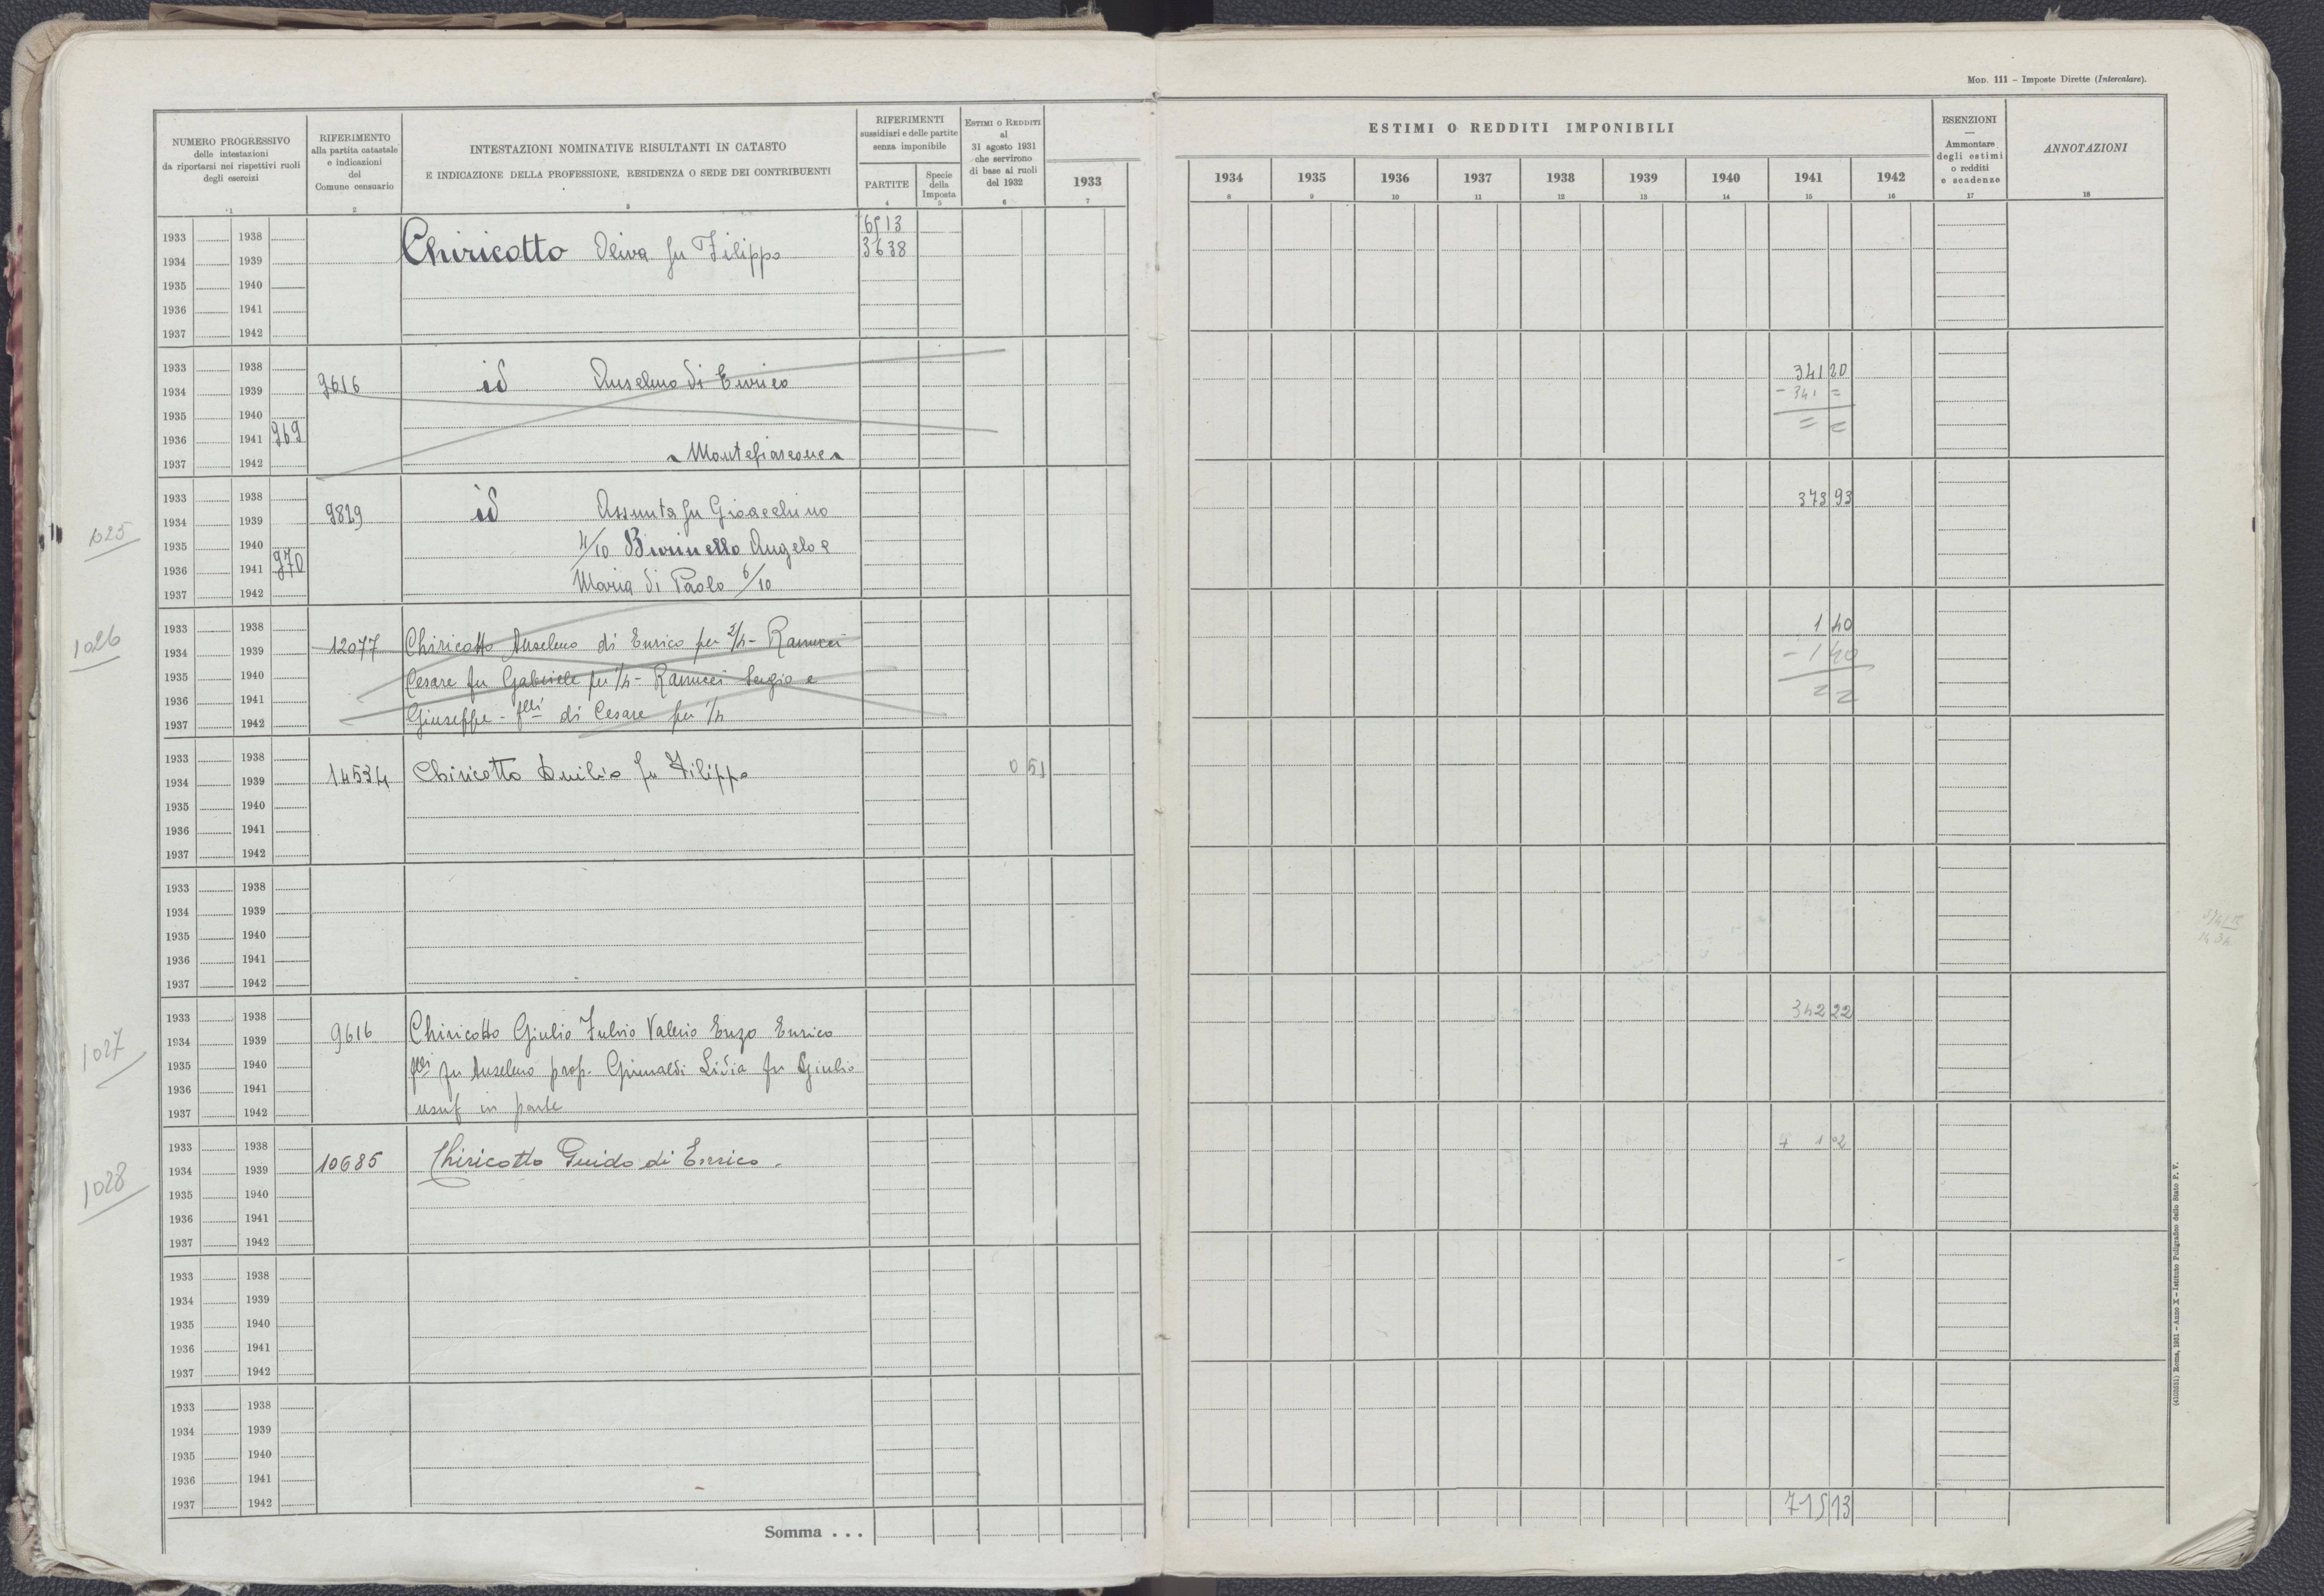 MOD. 111 – Imposte Dirette (Intercalare).
NUMERO PROGRESSIVO
delle intestazioni
da riportarsi nei rispettivi ruoli
degli esercizi
1
RIFERIMENTO
alla partita catastale
e indicazioni
del
Comune censuario
2
INTESTAZIONI NOMINATIVE RISULTANTI IN CATASTO
E INDICAZIONE DELLA PROFESSIONE, RESIDENZA O SEDE DEI CONTRIBUENTI
3
RIFERIMENTI
sussidiari e delle partite
senza imponibile
PARTITE
4
Specie
della
Imposta
5
ESTIMI O REDDITI
al
31 agosto 1931
che servirono
di base ai ruoli
del 1932
6
1933
7
ESTIMI O REDDITI IMPONIBILI
1934 1935 1936 1937 1938 1939 1940 1941 1942
8 9 10 11 12 13 14 15 16
ESENZIONI
—
Ammontare
degli estimi
o redditi
e scadenze
17
ANNOTAZIONI
18
6513
1933 1938
Chiricotto Oliva fu Filippo 3638
1934 1939
1935 1940
1936 1941
1937 1942
1933 1938
1934 1939 9616 id Anselmo di Enrico 341 20
- 341 =
1935 1940
= =
1936 1941 969
1937 1942 Montefiascone
1933 1938
1934 1939 9829 id Assunta fu Gioacchino 373 93
1025
1935 1940 4/10 Burinello Angelo e
1936 1941 970
1937 1942 Maria di Paolo 6/10
1933 1938
1026
1934 1939 12077 Chiricotto Anselmo di Enrico per 2/4 - Ranucci 1 40
- 1 40
1935 1940 Cesare fu Gabriele per 1/4 - Ranucci Sergio e
1936 1941
1937 1942 Giuseppe - flli di Cesare per 1/4
1933 1938
1934 1939 14534 Chiricotto Duilio fu Filippo 0 51
1935 1940
1936 1941
1937 1942
1933 1938
1934 1939
1935 1940
1936 1941
1937 1942
1933 1938
1027
1934 1939 9616 Chiricotto Giulio Fulvio Valerio Enzo Enrico 342 22
1935 1940 flli fu Anselmo prop. Grimaldi Lidia fu Giulio
1936 1941
1937 1942 usuf in parte
1933 1938
1028
1934 1939 10685 Chiricotto Guido di Enrico. + 1 02
1935 1940
1936 1941
1937 1942
1933 1938
1934 1939
1935 1940
1936 1941
1937 1942
1933 1938
1934 1939
1935 1940
1936 1941
1937 1942
Somma . . . 715 13
Roma, 1931 – Anno X – Istituto Poligrafico dello Stato P. V.